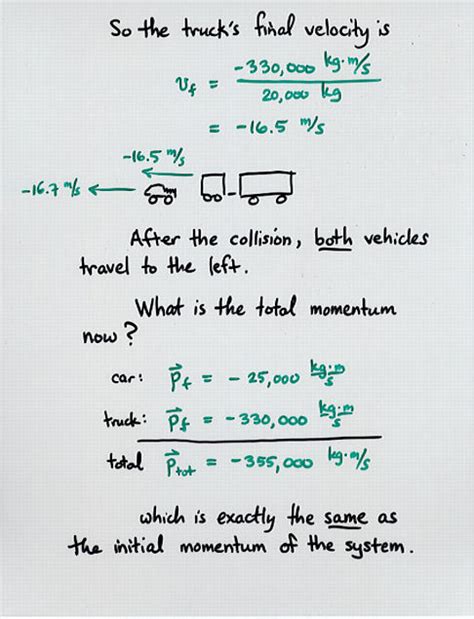 So the truck's final velocity is
v_f = -330,000 kg·m/s / 20,000 kg
= -16.5 m/s
-16.5 m/s
-16.7 m/s
After the collision, both vehicles
travel to the left.
What is the total momentum
now?
car: p⃗_f = - 25,000 kg·m/s
truck: p⃗_f = -330,000 kg·m/s
total p⃗_tot = -355,000 kg·m/s
which is exactly the same as
the initial momentum of the system.